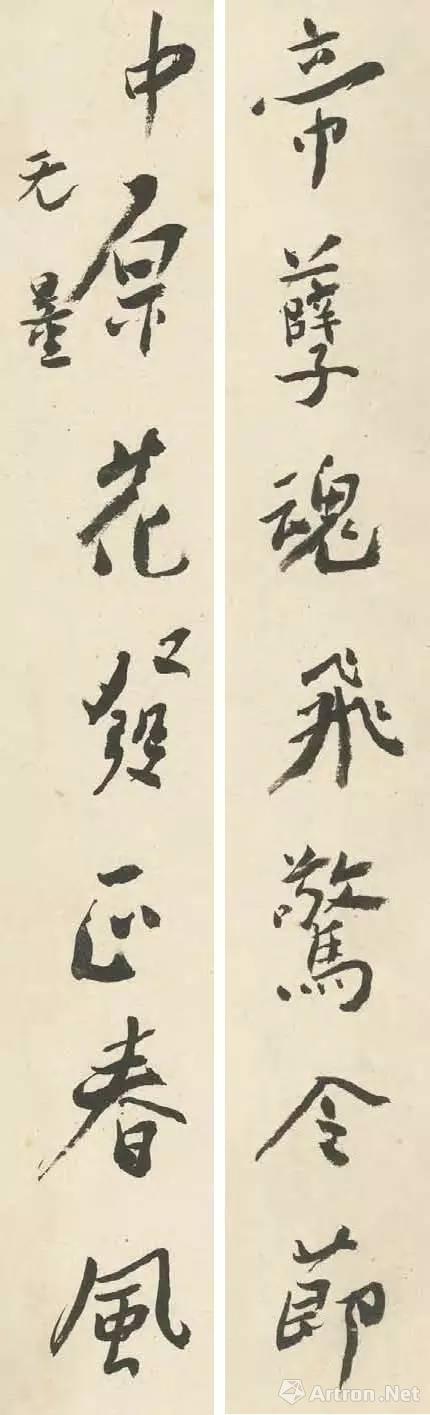 帝孽魂飛驚令節
中原花發正春風
无量
Artron.Net